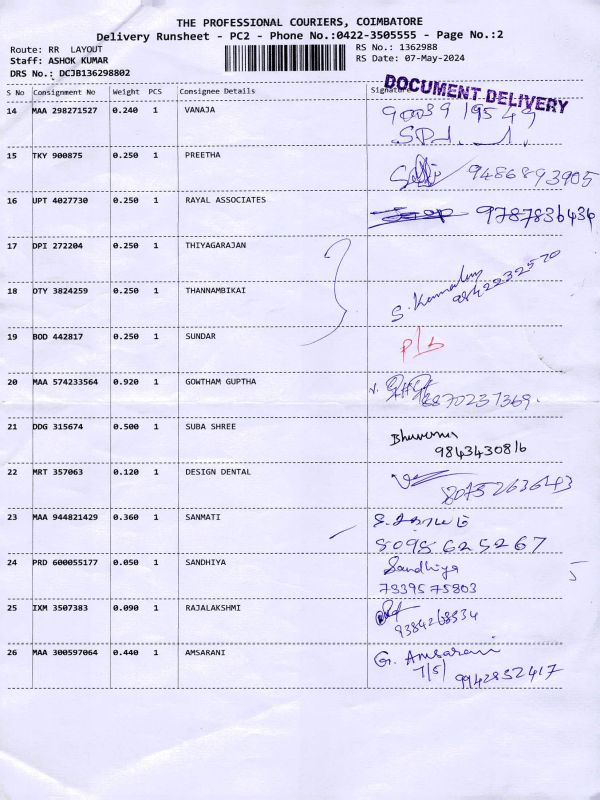 THE PROFESSIONAL COURIERS, COIMBATORE
Delivery Runsheet - PC2 - Phone No.:0422-3505555 - Page No.:2
Route: RR LAYOUT
RS No.: 1362988
Staff: ASHOK KUMAR
RS Date: 07-May-2024
DRS No.: DCJB136298802
DOCUMENT DELIVERY
S No Consignment No Weight PCS Consignee Details Signature
14 MAA 298271527 0.240 1 VANAJA
15 TKY 900875 0.250 1 PREETHA 9486893905
16 UPT 4027730 0.250 1 RAYAL ASSOCIATES 9787836436
17 DPI 272204 0.250 1 THIYAGARAJAN
18 OTY 3824259 0.250 1 THANNAMBIKAI
19 BOD 442817 0.250 1 SUNDAR
20 MAA 574233564 0.920 1 GOWTHAM GUPTHA
8870237369.
21 DDG 315674 0.500 1 SUBA SHREE
9843430816
22 MRT 357063 0.120 1 DESIGN DENTAL
80752636143
23 MAA 944821429 0.360 1 SANMATI
8098625267
24 PRD 600055177 0.050 1 SANDHIYA Sandhiya
7339575803
25 IXM 3507383 0.090 1 RAJALAKSHMI
9384268334
26 MAA 300597064 0.440 1 AMSARANI G. Amsarani
7/5/ 9942832417